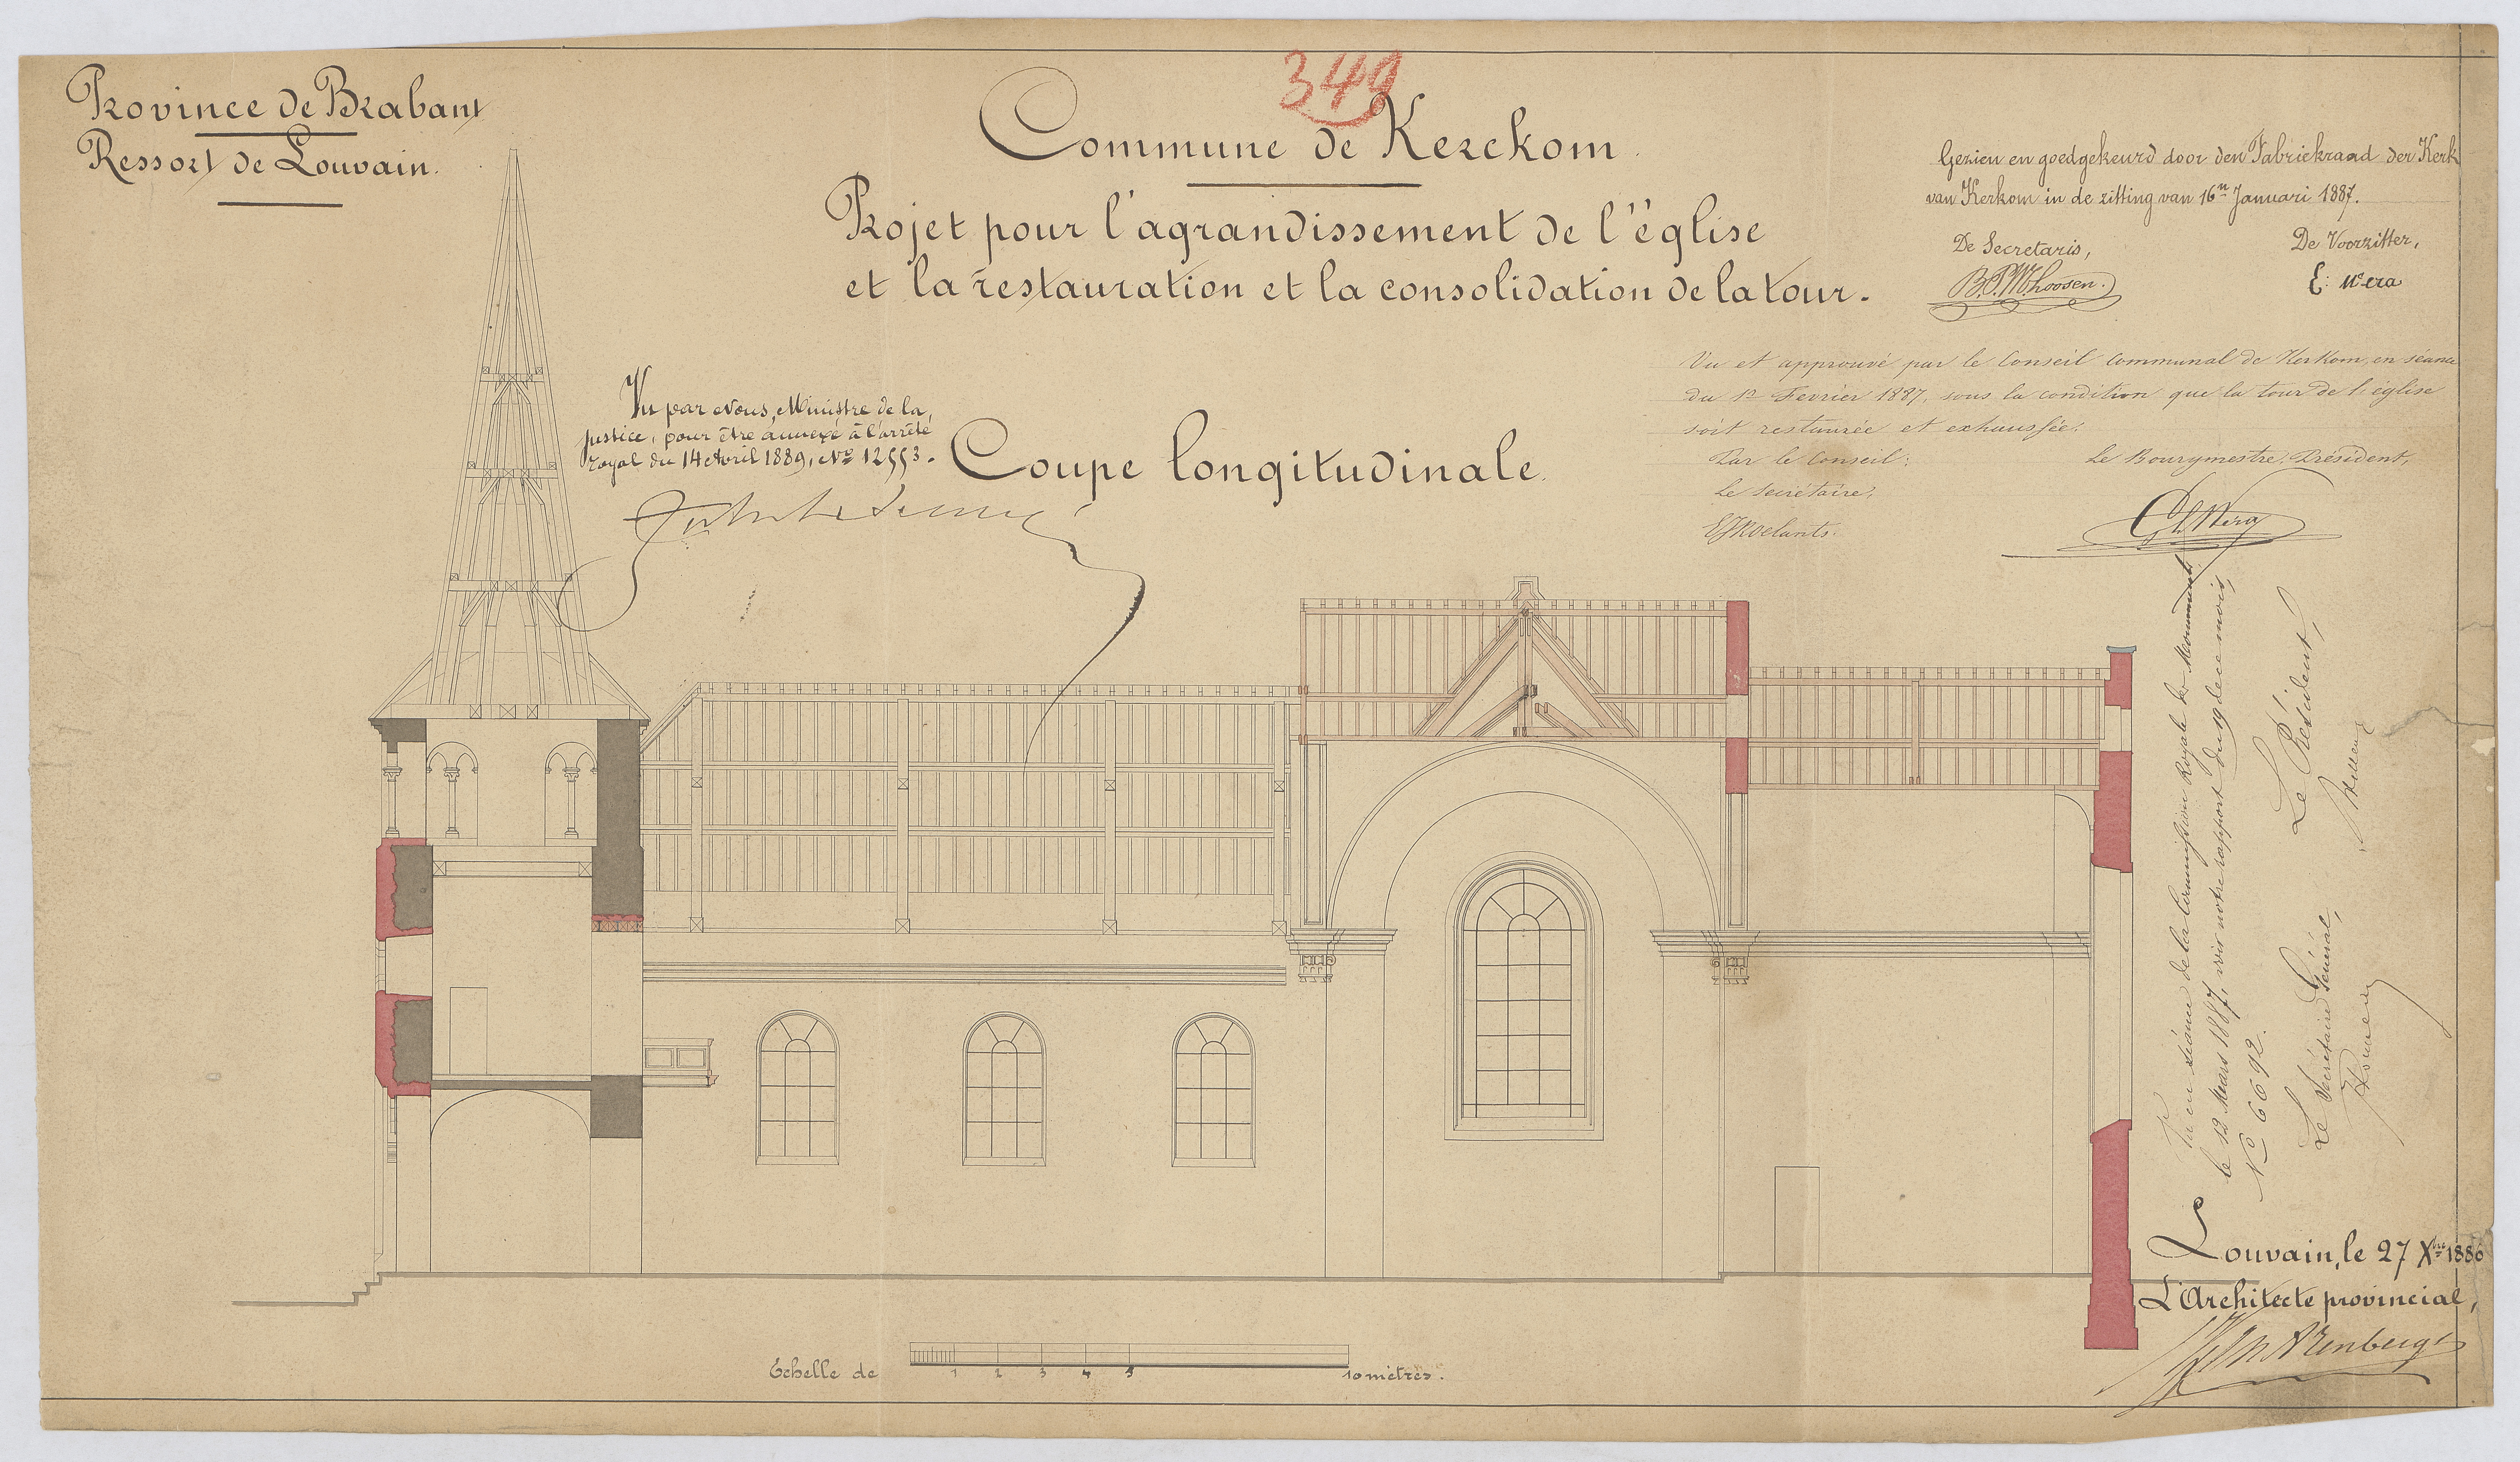 349
Province de Brabant
Ressort de Louvain.
Commune de Kerckom.
Projet pour l'agrandissement de l'église
et la restauration et la consolidation de la tour.
Gezien en goedgekeurd door den Fabriekraad der Kerk
van Kerkom in de zitting van 16n Januari 1887.
De Secretaris,
De Voorzitter,
Vu et approuvé par le Conseil communal de Kerkom, en séance
du 1r Fevrier 1887, sous la condition que la tour de l'église
soit restaurée et exhaussée.
Par le Conseil:
Le Secrétaire,
Le Bourgmestre, Président,
Vu par Nous, Ministre de la
justice, pour être annexé à l'arrêté
royal du 14 Avril 1889, No 12553.
Coupe longitudinale.
Vu en séance de la Commission Royale des Monuments
le 12 Mars 1887, voir notre rapport du 19 de ce mois,
No 6692.
Le Secrétaire Général,
Le Président,
Louvain, le 27 Xbre 1886
L'Architecte provincial,
Echelle de
1 2 3 4 5
10 mètres.